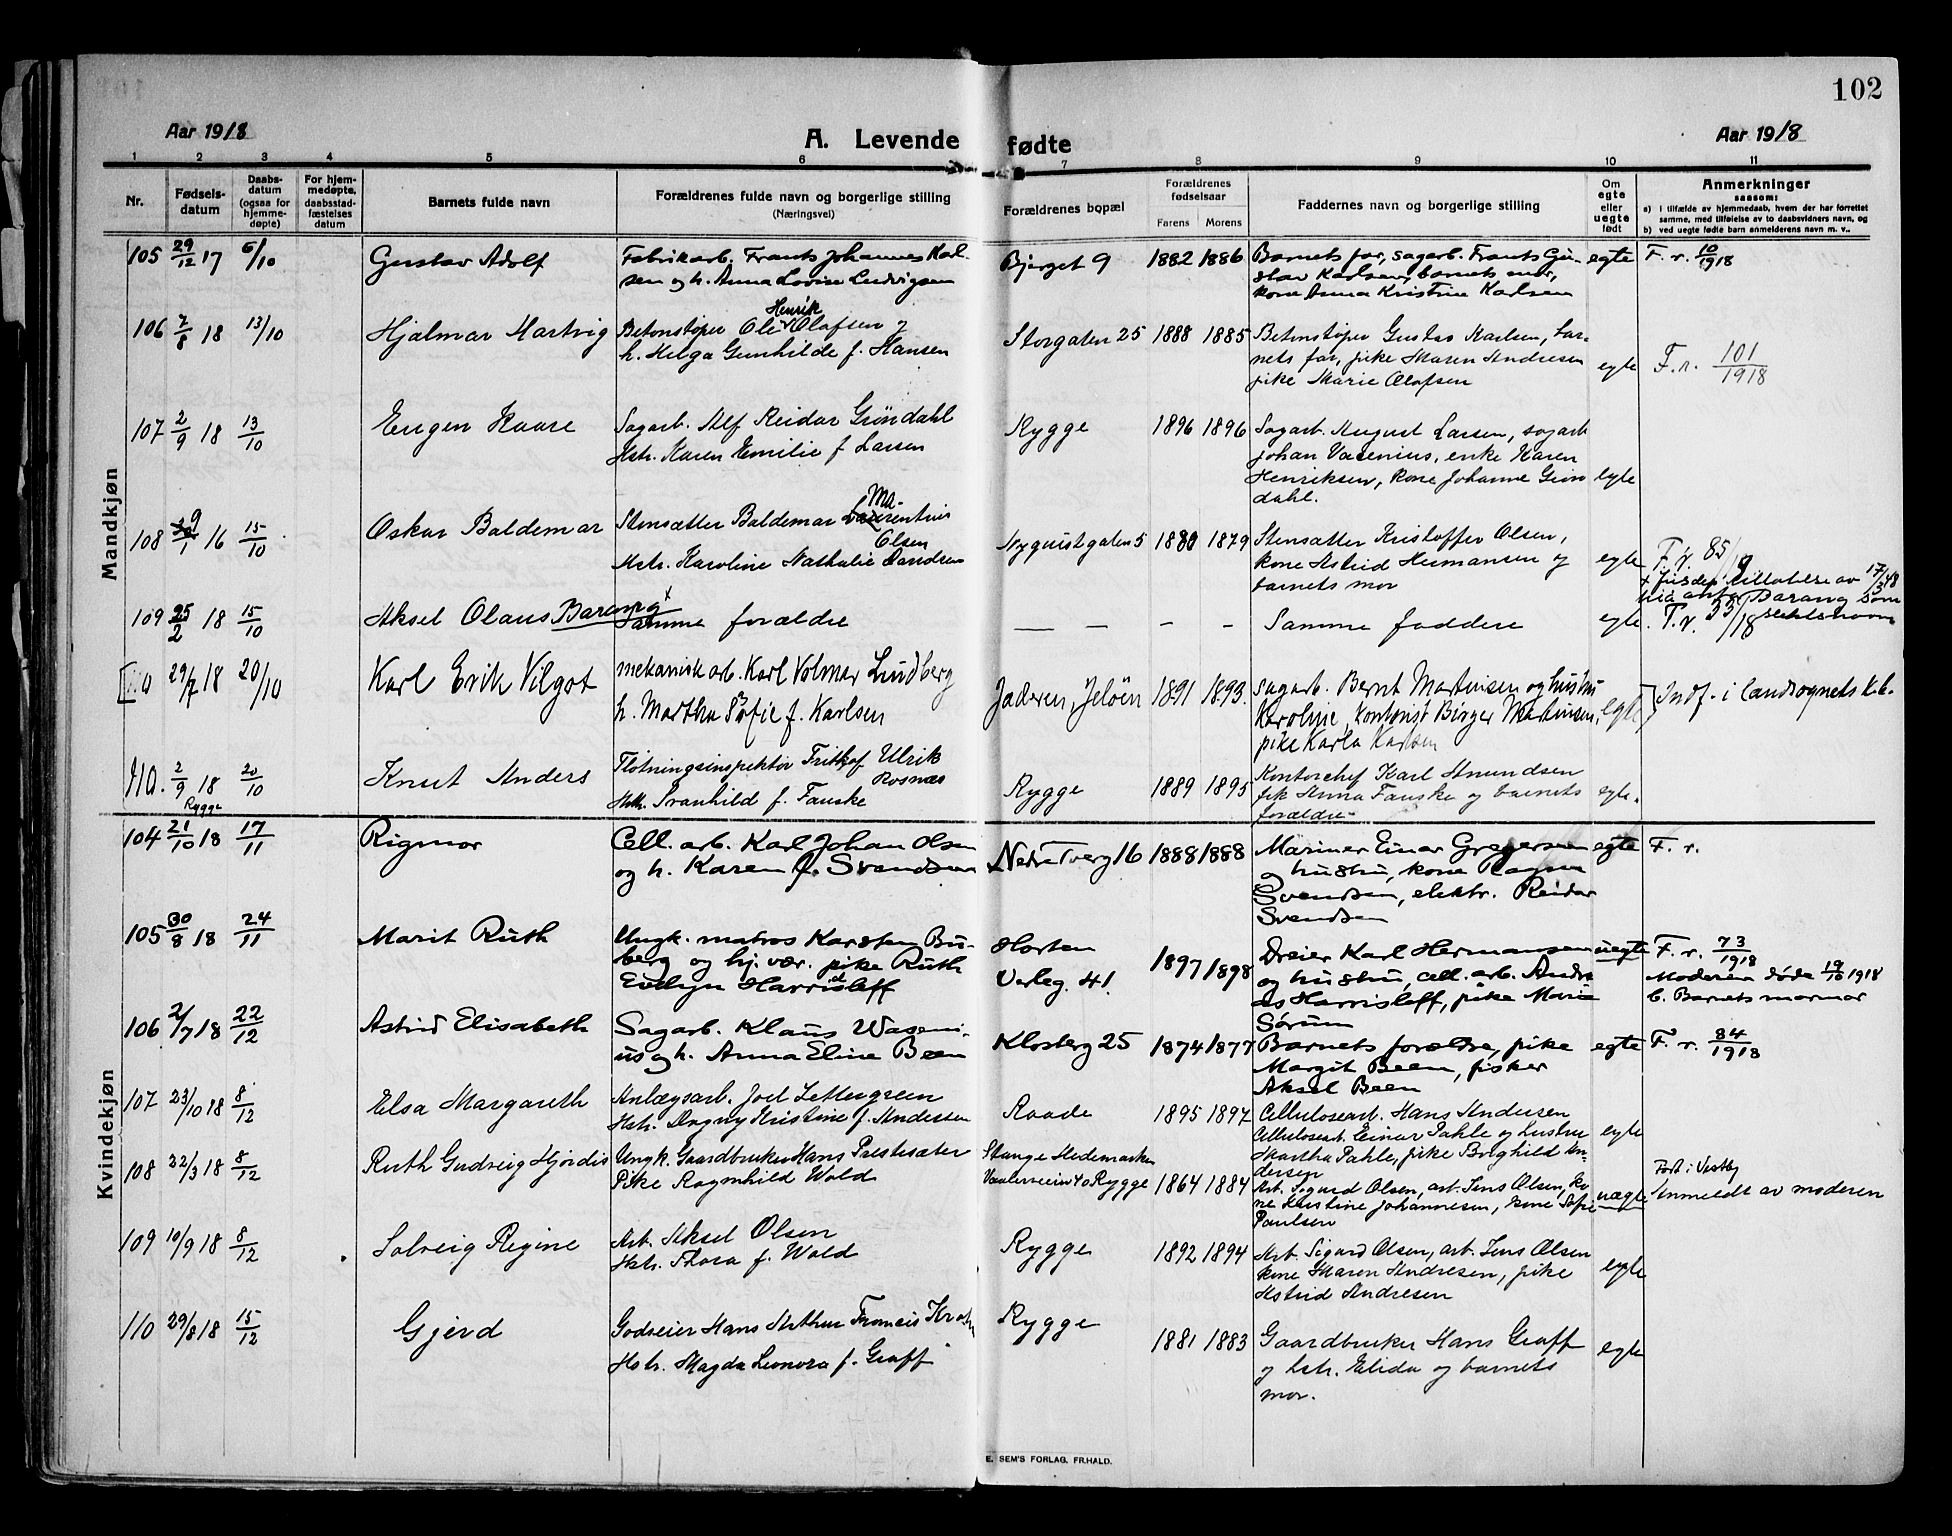 102
Aar 1918
A. Levende fødte
Aar 1918
1 2 3 4 5 6 7 8 9 10 11
Nr.
Fødsels-
datum
Daabs-
datum
(ogsaa for
hjemme-
døpte)
For hjem-
medøpte,
daabsstad-
fæstelses
datum
Barnets fulde navn
Forældrenes fulde navn og borgerlige stilling
(Næringsvei)
Forældrenes bopæl
Forældrenes
fødselsaar
Farens Morens
Faddernes navn og borgerlige stilling
Om
egte
eller
uegte
født
Anmerkninger
saasom:
a) I tilfælde av hjemmedaab, hvem der har forrettet
samme, med tilføielse av to daabsvidners navn, og
b) ved uegte fødte barn anmelderens navn m. v..
Mandkjøn
105 29/12 17 6/10 Gustav Adolf Fabrikarb. Frants Johannes Karl- Bjerget 9 1882 1886 Barnets far, sagarb. Frants Gu- egte F. r. 10/1918
sen og h. Anna Lovise Ludvigsen stav Karlsen, barnets mor,
kone Anna Kristine Karlsen
Henrik
106 7/8 18 13/10 Hjalmar Martvig Betonstøper Ole Olafsen og Storgaten 25 1888 1885 Betonstøper Gustav Karlsen, bar-
h. Helga Gunhilde f. Hansen nets far, pike Maren Andresen egte F. r. 101/1918
pike Marie Olafsen
107 2/9 18 13/10 Eugen Kaare Sagarb. Alf Reidar Grøndahl Rygge 1896 1896 Sagarb. August Larsen, sagarb
Hstr. Karen Emilie f Larsen Johan Vacenius, enke Karen
Henriksen, kone Johanne Grøn egte
dahl.
108 9/1 16 15/10 Oskar Baldemar Stensætter Baldemar Maurentius Nyquistgaten 5 1880 1879 Stensætter Kristoffer Olsen,
Olsen kone Astrid Hermansen og egte F. r. 85/18
Hstr. Karoline Nathalie barnets mor
109 25/2 18 15/10 Aksel Olaus Barang x Samme forældre — — — — Samme faddere egte F. r. 33/18
110 29/7 18 20/10 Karl Erik Vilgot mekanisk arb. Karl Volmar Lundberg Jaderen, Jeløen 1891 1893. Sagarb. Bernt Martinsen og hustru egte Indf. i landsognets k.b.
h. Martha Sofie f. Karlsen Karoline, kontorist Birger Martinsen,
pike Karla Karlsen
110. 2/9 18 20/10 Knut Anders Fløtningsinspektør Frithjof Ulrik Rygge 1889 1895 Kontorchef Karl Amundsen
Rygge Rosnæs frk Anna Fauske og barnets egte.
Hstr. Svanhild f. Fauske forældre
Kvindekjøn
104 21/10 18 17/11 Rigmor Cell. arb. Karl Johan Olsen Nedre Tverg 16 1888 1888 Mariner Einar Gregersen egte F. r.
og h. Karen f. Svendsen og hustru, kone Ragna
Svendsen, elektr. Reidar
Svendsen
105 30/8 18 24/11 Marit Ruth Ungk. matros Karsten Bu- Horten 1897 1898 Dreier Karl Hermansen uegte F. r. 73/1918
berg og hj. vær. pike Ruth Verleg. 41. og hustru, cell. arb. Andre Moderen døde 19/10 1918
Evelyn Harrisleff as Harrisleff, pike Marie b. Barnets mormor
Sørum
106 2/7 18 22/12 Astrid Elisabeth Sagarb. Klaus Waseni- Klosterg 25 1874 1877 Barnets forældre, pike egte F. r. 84/1918
us og h. Anna Eline Been Margit Been, fisker
Aksel Been
107 23/10 18 8/12 Elsa Margareth Anlægsarb. Joel Zettergreen Raade 1895 1897 Cellulosearb. Hans Andersen
Hstr. Dagny Kristine f. Andersen Cellulosearb. Einar Pahle og hustru egte
Martha Pahle, pike Borghild An-
dersen
108 22/3 18 8/12 Ruth Gudveig Hjørdis Ungk. Gaardbruker Hans Præstesæter Stange Hedemarken Født i Vestby
Pike Ragnhild Wold Vaalerveien 40 Rygge 1864 1884 Arb. Sigurd Olsen, arb. Jens Olsen, ko uegte Anmeldt av moderen
ne Kristine Johannesen, kone Sofie
Paulsen
109 10/9 18 8/12 Solveig Regine Arb. Aksel Olsen Rygge 1892 1894 Arb. Sigurd Olsen, arb. Jens Olsen
Hstr. Thora f. Wold kone Maren Andresen, pike egte
Astrid Andresen
110 29/8 18 15/12 Gjerd Godseier Hans Arthur Francis Krohn Rygge 1881 1883 Gaardbruker Hans Graff egte
Hstr. Magda Leonora f. Graff og hstr. Elida og barnets
mor.
E. SEM'S FORLAG. FR.HALD.